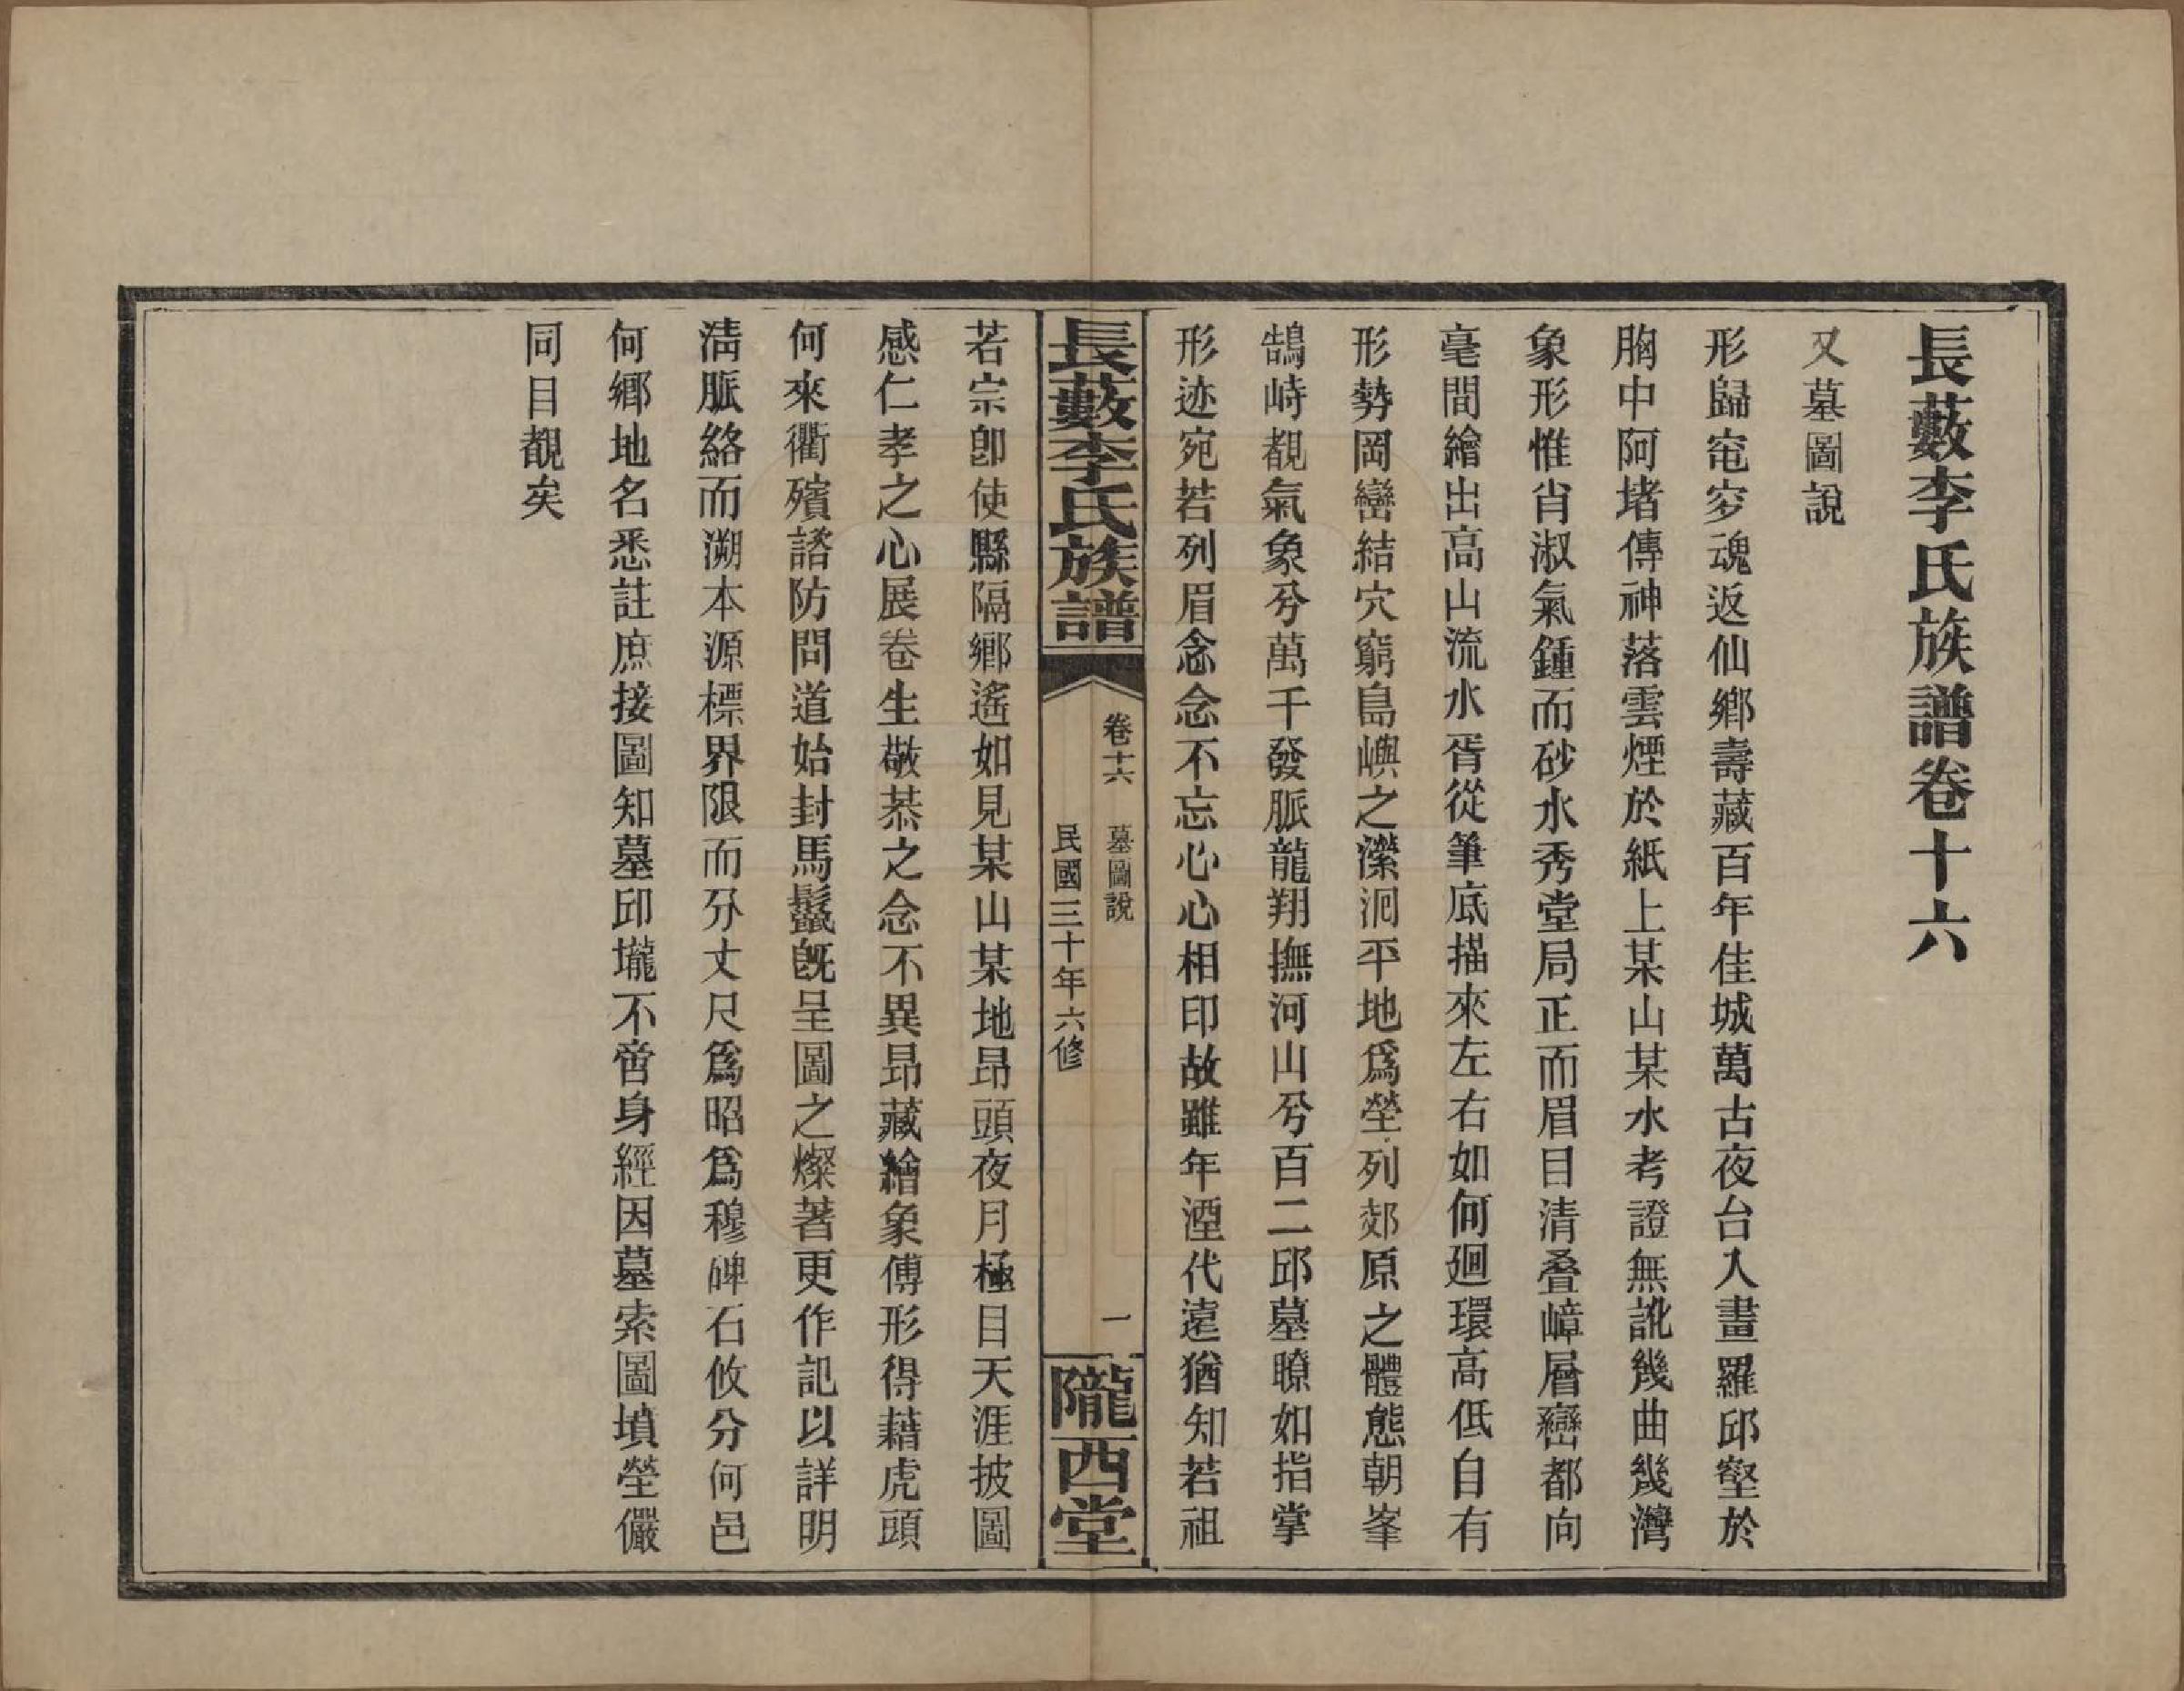 長藪李氏族譜卷十六
又墓圖說
形歸窀穸魂返仙鄉壽藏百年佳城萬古夜台入畫羅邱壑於
胸中阿堵傳神落雲煙於紙上某山某水考證無訛幾曲幾灣
象形惟肖淑氣鍾而砂水秀堂局正而眉目清叠嶂層巒都向
毫間繪出高山流水胥從筆底描來左右如何廻環高低自有
形勢岡巒結穴窮島嶼之瀠洄平地爲塋列郊原之體態朝峯
鵠峙覩氣象兮萬千發脈龍翔撫河山兮百二邱墓瞭如指掌
形迹宛若列眉念念不忘心心相印故雖年湮代遠猶知若祖
長藪李氏族譜
卷十六
墓圖說
一
民國三十年六修
隴西堂
若宗卽使縣隔鄉遙如見某山某地昂頭夜月極目天涯披圖
感仁孝之心展卷生敬恭之念不異昂藏繪象傅形得藉虎頭
何來衢殯諮防問道始封馬鬛旣呈圖之燦著更作記以詳明
淸脈絡而溯本源標界限而分丈尺爲昭爲穆碑石攸分何邑
何鄉地名悉註庶接圖知墓邱壠不啻身經因墓索圖墳塋儼
同目覩矣